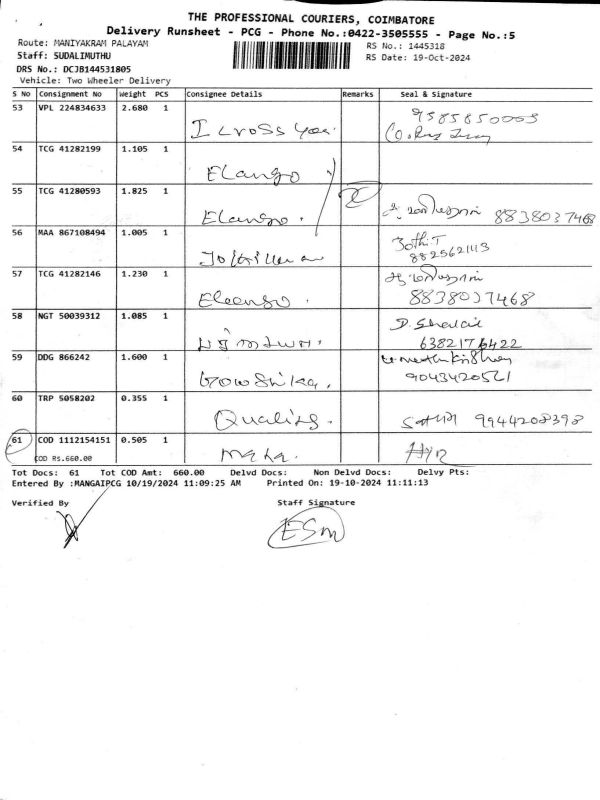 THE PROFESSIONAL COURIERS, COIMBATORE
Delivery Runsheet - PCG - Phone No.:0422-3505555 - Page No.:5
Route: MANIYAKRAM PALAYAM
Staff: SUDALIMUTHU
DRS No.: DCJB144531805
Vehicle: Two Wheeler Delivery
RS No.: 1445318
RS Date: 19-Oct-2024
S No Consignment No Weight PCS Consignee Details Remarks Seal & Signature
53 VPL 224834633 2.680 1 I cross you. 9585850003
54 TCG 41282199 1.105 1 Elango
55 TCG 41280593 1.825 1 Elango. 8838037468
56 MAA 867108494 1.005 1 Jothi.T
8825621113
57 TCG 41282146 1.230 1 Elango. 8838037468
58 NGT 50039312 1.085 1 6382176422
59 DDG 866242 1.600 1 Gowshika. 9043420561
60 TRP 5058202 0.355 1 Quality. 9944208398
61 COD 1112154151 0.505 1 maha.
COD RS.660.00
Tot Docs: 61 Tot COD Amt: 660.00 Delvd Docs: Non Delvd Docs: Delvy Pts:
Entered By :MANGAIPCG 10/19/2024 11:09:25 AM Printed On: 19-10-2024 11:11:13
Verified By Staff Signature
ESM